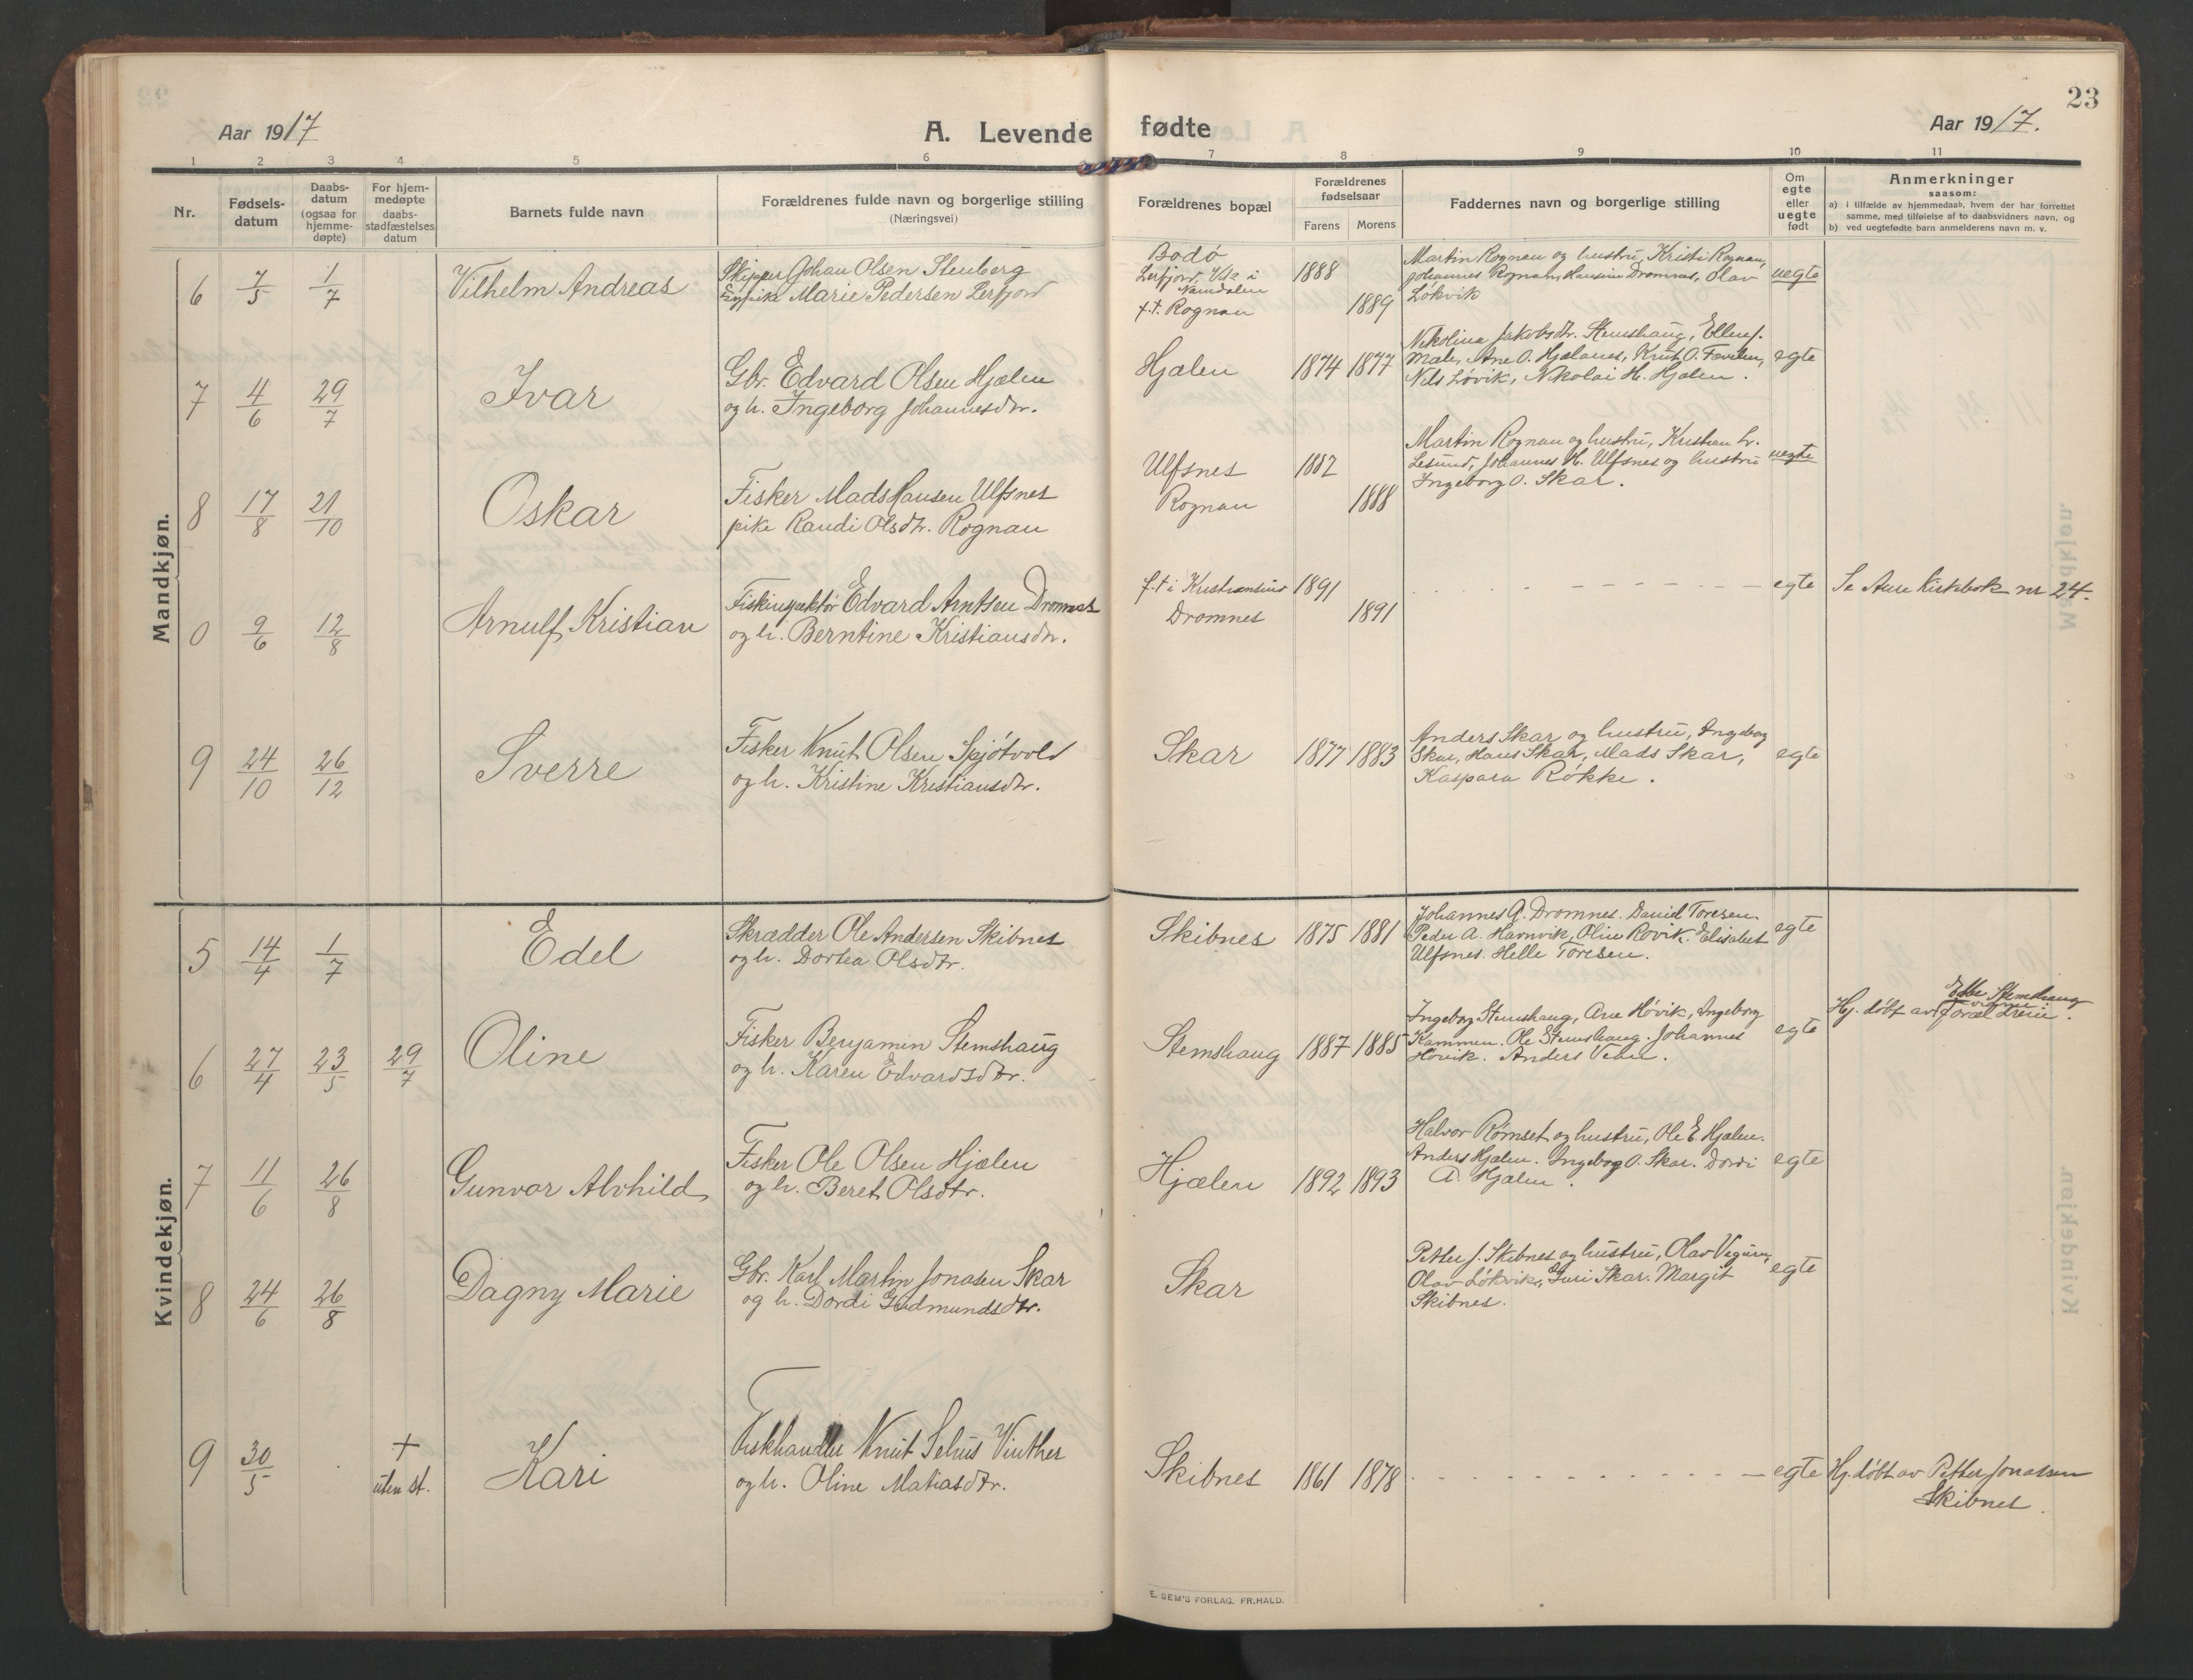 23
Aar 1917
A. Levende fødte
Aar 1917.
1 2 3 4 5 6 7 8 9 10 11
Nr.
Fødsels-
datum
Daabs-
datum
(ogsaa for
hjemme-
døpte)
For hjem-
medøpte
daabs-
stadfæstelses
datum
Barnets fulde navn
Forældrenes fulde navn og borgerlige stilling
(Næringsvei)
Forældrenes bopæl
Forældrenes
fødselsaar
Farens Morens
Faddernes navn og borgerlige stilling
Om
egte
eller
uegte
født
Anmerkninger
saasom:
a) i tilfælde av hjemmedaab, hvem der har forrettet
samme, med tilføielse af to daabsvidners navn, og
b) ved uegtefødte barn anmelderens navn m. v.
Mandkjøn.
6 7/5 1/7 Vilhelm Andreas
Skipper Johan Olsen Stenberg
pike Marie Pedersen Lerfjord
Bodø
Lerfjord i
Namdalen
f.t. Rognan
1888
1889
Martin Rognan og hustru, Kristi Rognan,
Johannes Rognan, Hansine Dromnes, Olav
Løkvik
uegte
7 4/6 29/7 Ivar
Gbr. Edvard Olsen Hjælen
og h. Ingeborg Johannesdtr.
Hjælen 1874 1877
Nikolina Jakobsdtr. Stemshaug, Ellen J.
Mæle, Ane O. Hjælanes, Knut O.
Nils Løvik, Nikolai H. Hjælen.
egte
8 17/8 21/10 Oskar
Fisker Mads Hansen Ulfsnes
pike Randi Olsdtr. Rognan
Ulfsnes 1882
Rognan 1888
Martin Rognan og hustru, Kristian
Lesund, Johannes H. Ulfsnes og hustru
Ingeborg O. Skar.
uegte
0 9/6 12/8 Arnulf Kristian
Fiskinspektør Edvard Arntsen Dromnes
og h. Berntine Kristiansdtr.
f.t. i Kristiansund 1891
Dromnes 1891
egte
Se Aure Kirkebok nr 24.
9 24/10 26/12 Sverre
Fisker Knut Olsen Spjøtvold
og h. Kristine Kristiansdtr.
Skar 1877 1883
Anders Skar og hustru, Ingeborg
Skar, Hans Skar, Mads Skar,
Kaspara Røkke.
egte
Kvindekjøn.
5 14/4 1/7 Edel
Skrædder Ole Andersen Skibnes
og h. Dortea Olsdtr.
Skibnes 1875 1881
Johannes A. Dromnes. Daniel Toresen.
Peder A. Havnvik, Oline Rovik. Elisabet
Ulfsnes. Helle Toresen.
egte
6 27/4 23/5 29/7 Oline
Fisker Benjamin Stemshaug
og h. Karen Edvardsdtr.
Stemshaug 1887 1885
Ingeborg Stemshaug, Ane Høvik, Ingeborg
Kammen. Ole Stemshaug. Johannes
Høvik. Anders
egte
Stemshaug
Hj. døbt av
7 11/6 26/8 Gunvor Alvhild
Fisker Ole Olsen Hjælen
og h. Beret Olsdtr.
Hjælen 1892 1893
Halvor Rømset og hustru, Ole E. Hjælen.
Anders Hjælen. Ingeborg O. Skar. Dordi
A. Hjælen.
egte
8 24/6 26/8 Dagny Marie
Gbr. Karl Martin Jonasen Skar
og h. Dordi Gudmundsdtr.
Skar
Petter J. Skibnes og hustru, Olav
Olav Løkvik, Guri Skar. Margit
Skibnes.
egte
9 30/5 + uten st. Kari
Fiskhandler Knut Selius Vinther
og h. Oline Matiasdtr.
Skibnes 1861 1878
egte
Hj. døbt av Petter Jonassen
Skibnes.
E. SEM'S FORLAG, FR.HALD.